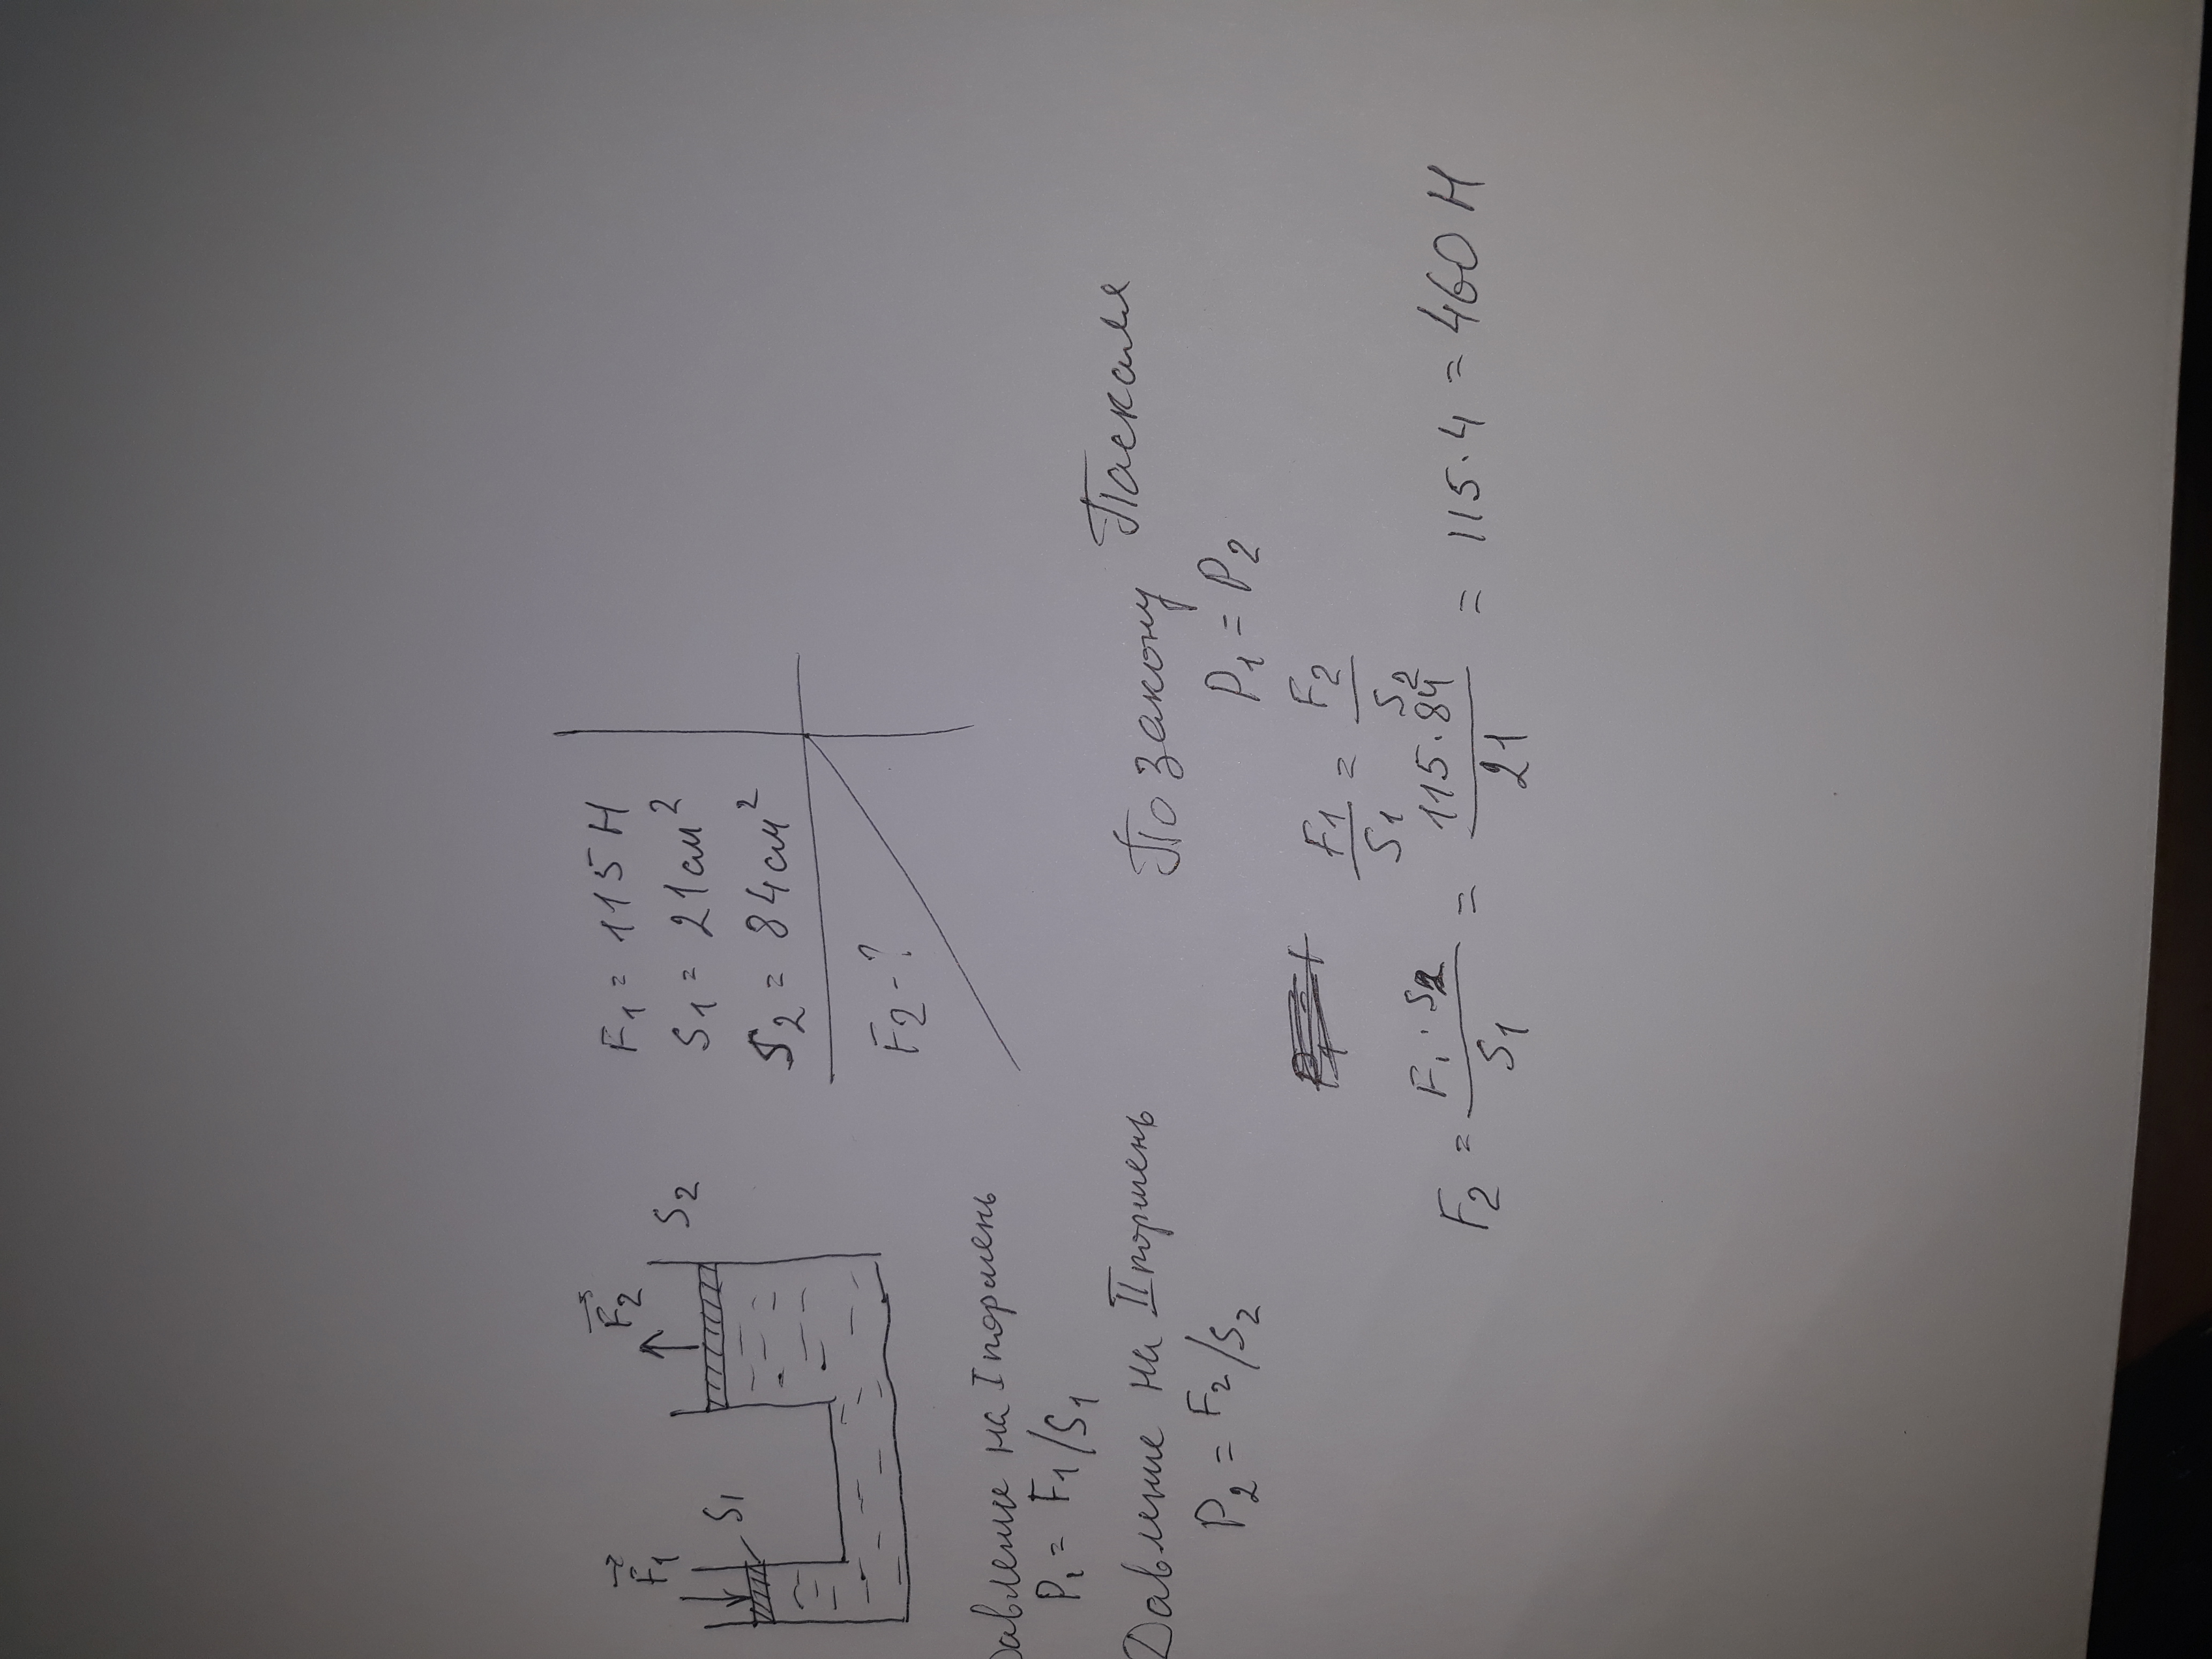 F₁ = 115 Н
S₁ = 21 см²
S₂ = 84 см²
F₂ - ?
F₁
S₁
F₂
S₂
Давление на I поршень
P₁ = F₁/S₁
Давление на II поршень
P₂ = F₂/S₂
По закону Паскаля
P₁ = P₂
F₁/S₁ = F₂/S₂
F₂ = F₁·S₂/S₁ = 115·84/21 = 115·4 = 460 Н